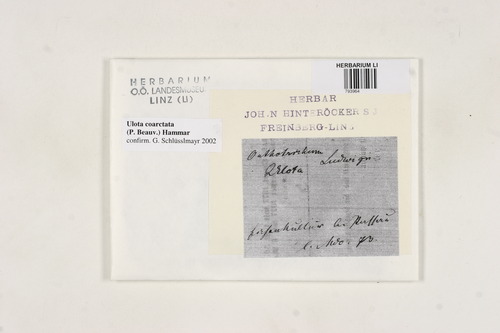 HERBARIUM
O.Ö. LANDESMUSEUM
LINZ (LI)
HERBARIUM LI
793964
HERBAR
JOHAN HINTERÖCKER S.J
FREINBERG-LINZ
Ulota coarctata
(P. Beauv.) Hammar
confirm. G. Schlüsslmayr 2002
Orthotrichum Ludwigii
Ulota